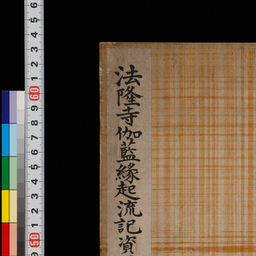 法隆寺伽藍縁起流記資
6 5 4 3 2 1 60 9 8 7 6 5 4 3 2 1 50